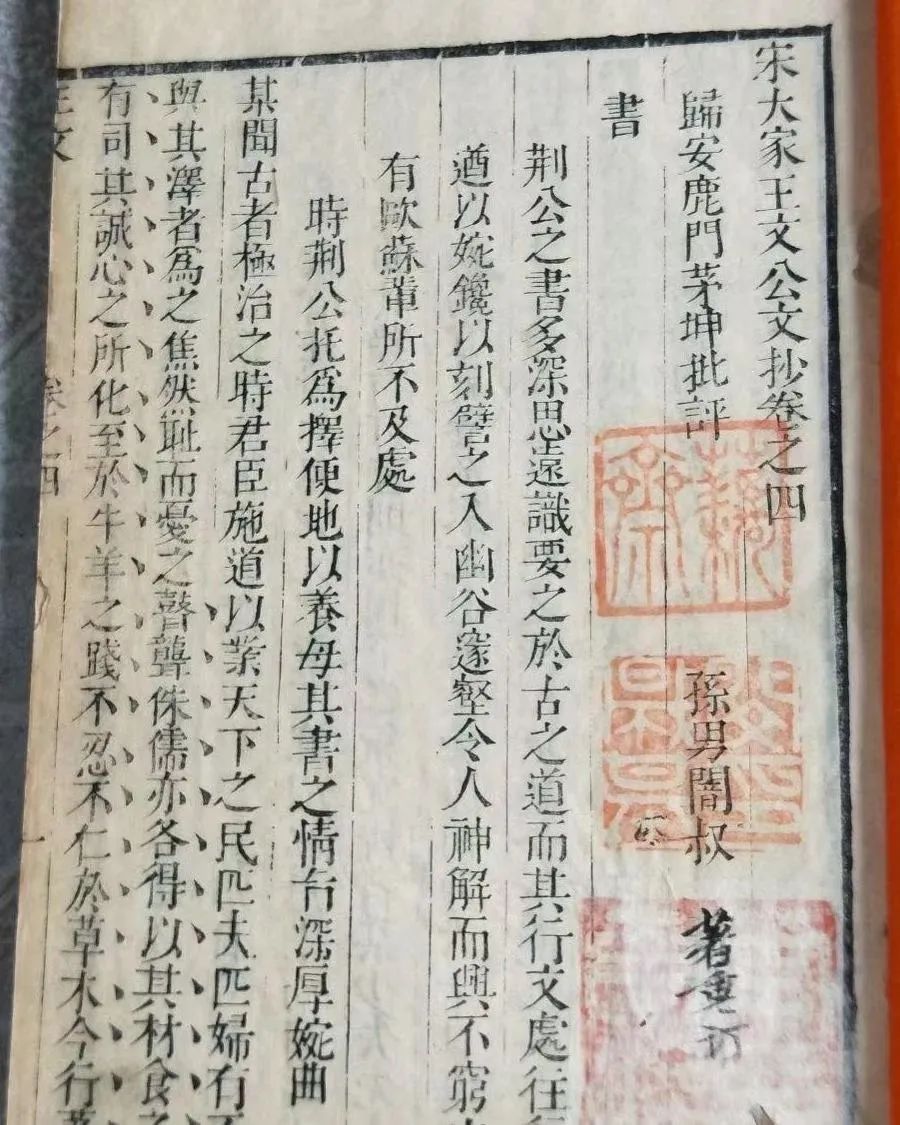 宋大家王文公文抄卷之四
歸安鹿門茅坤批評
孫男闇叔著重訂
書
荆公之書多深思遠識要之於古之道而其行文處往
遒以婉鑱以刻譬之入幽谷邃壑令人神解而興不窮
有歐蘇輩所不及處
時荆公托爲擇便地以養母其書之情旨深厚婉曲
某聞古者極治之時君臣施道以業天下之民匹夫匹婦有不
與其澤者爲之焦然耻而憂之瞽聾侏儒亦各得以其材食之
有司其誠心之所化至於牛羊之踐不忍不仁於草木今行葦
王文
卷之四